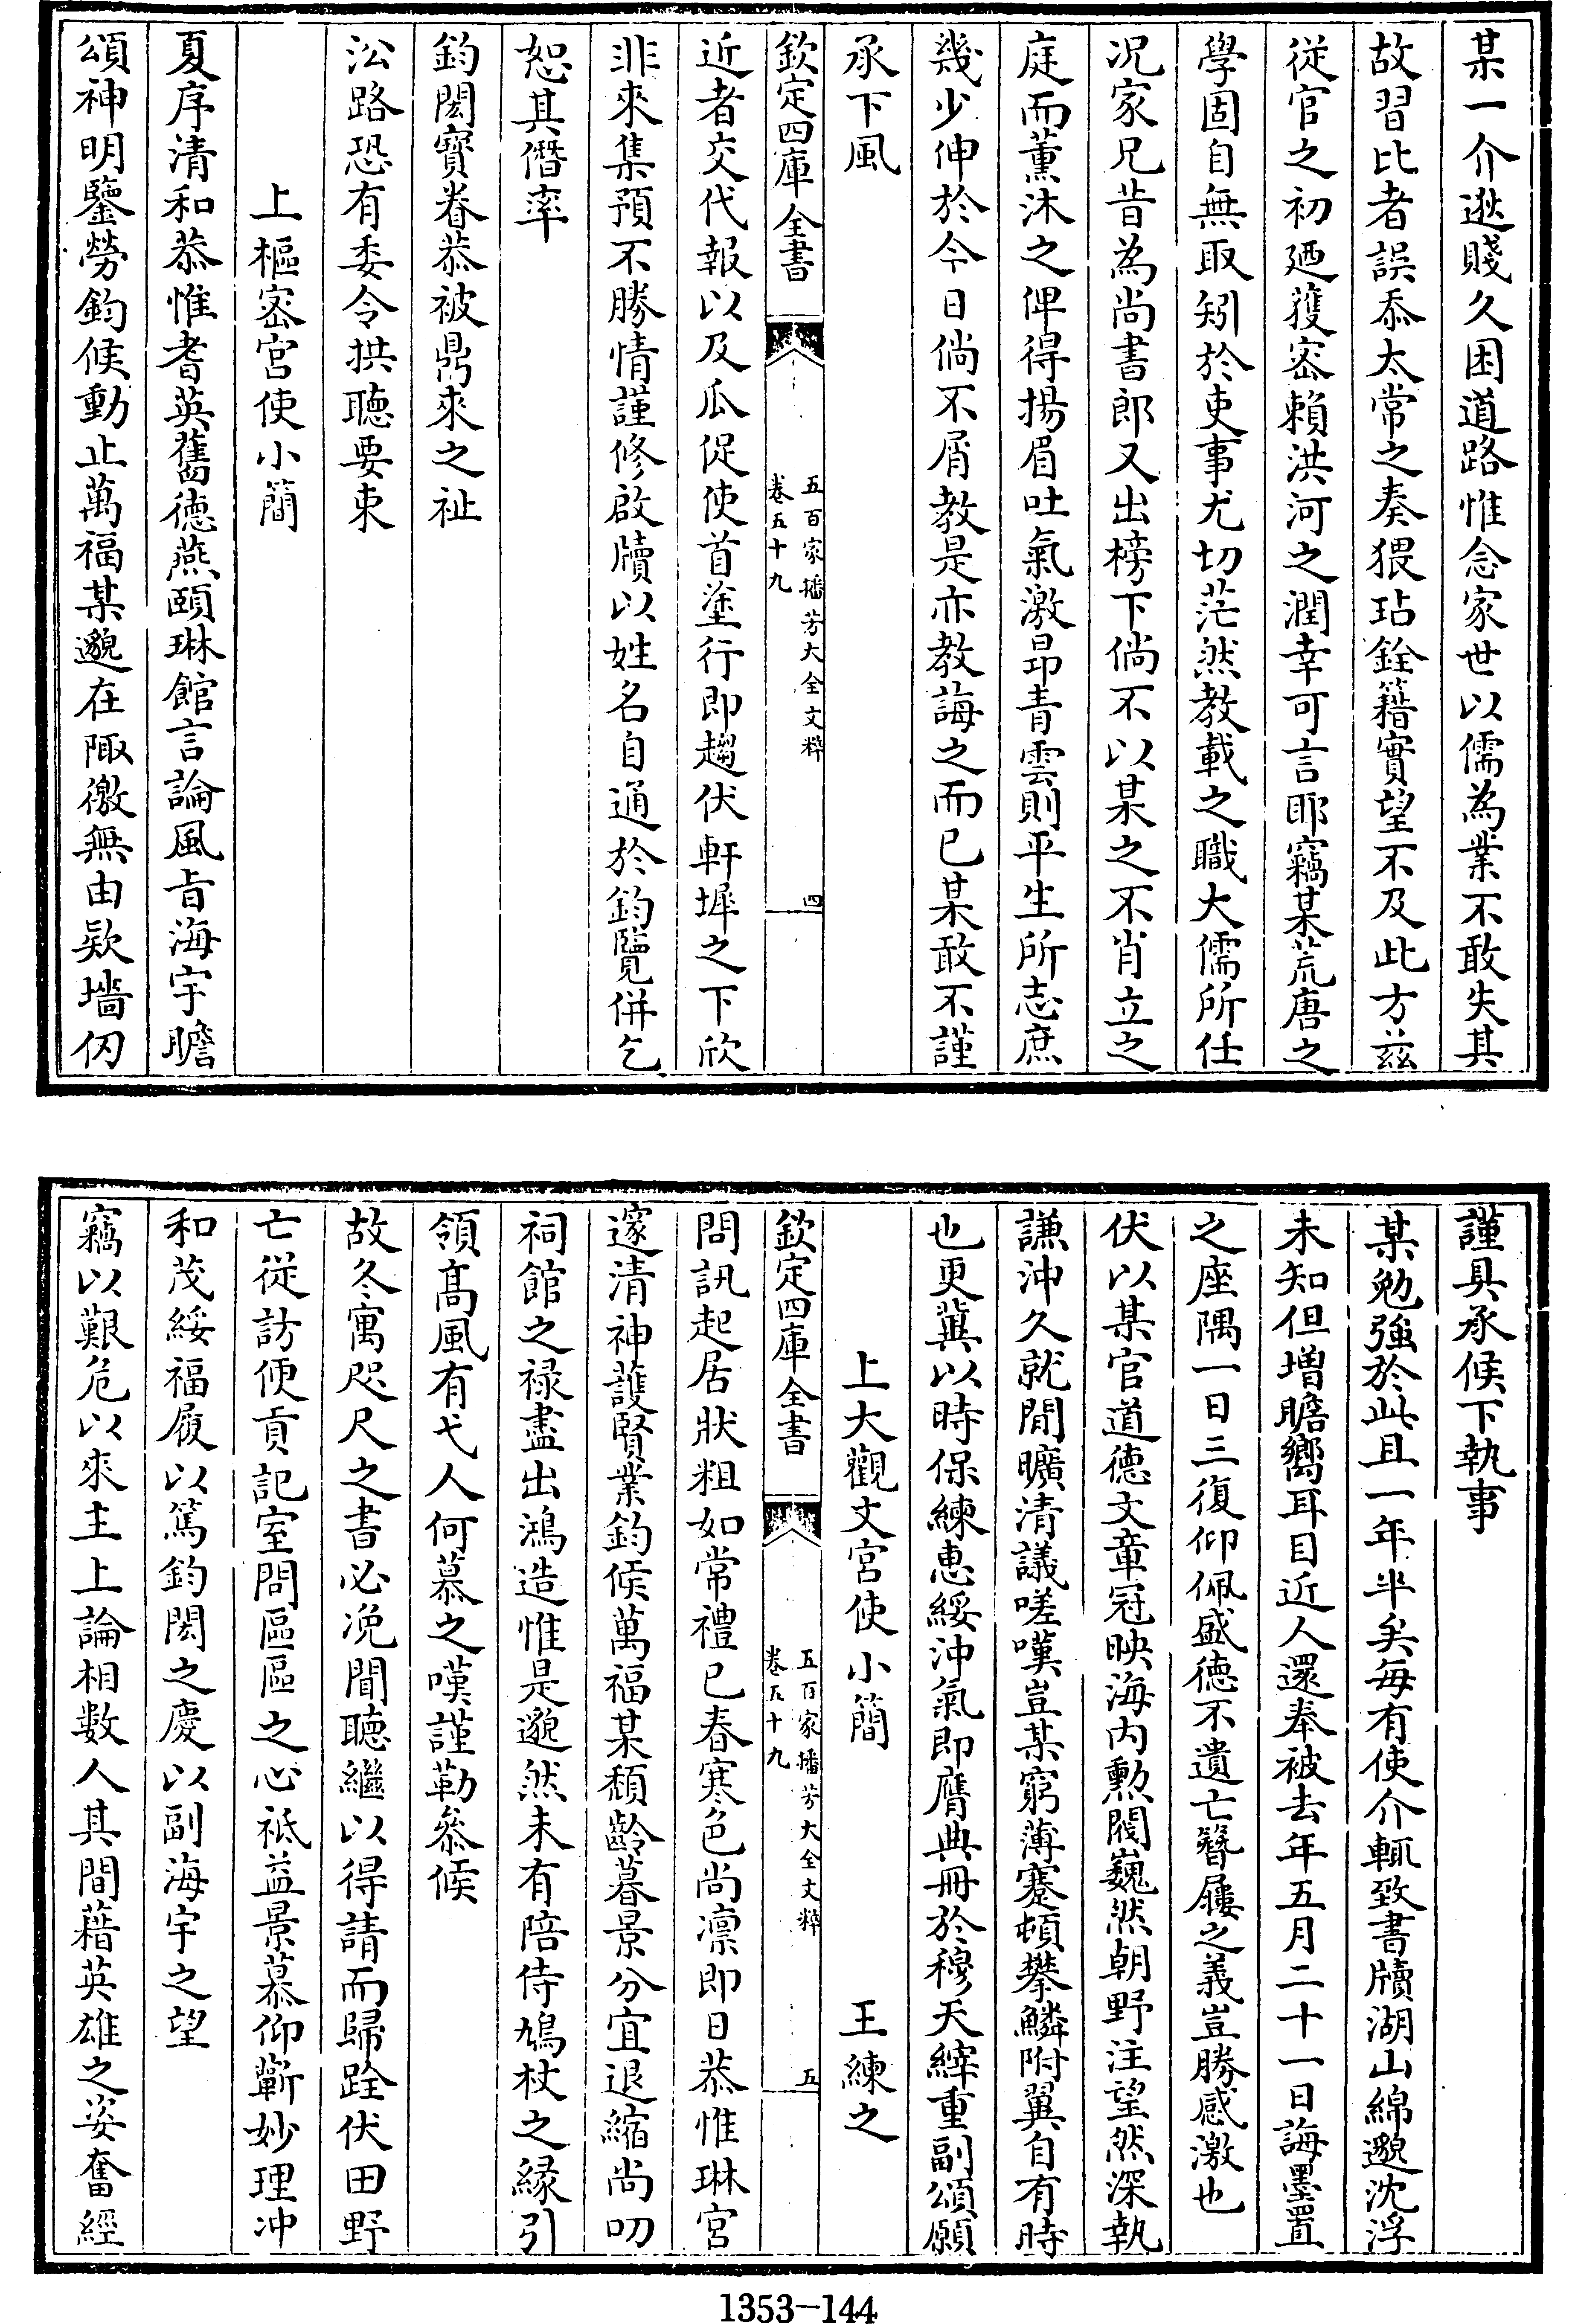 某一介逖賤久困道路惟念家世以儒為業不敢失其
故習比者誤忝太常之奏猥玷銓籍實望不及此方兹
從官之初廼獲宻賴洪河之潤幸可言耶竊某荒唐之
學固自無取矧於吏事尤切茫然教載之職大儒所任
况家兄昔為尚書郎又出榜下倘不以某之不肖立之
庭而薰沐之俾得揚眉吐氣激昂青雲則平生所志庶
幾少伸於今日倘不屑教是亦教誨之而已某敢不謹
承下風
欽定四庫全書
五百家播芳大全文粹
卷五十九
四
近者交代報以及瓜促使首塗行即趨伏軒墀之下欣
非來集預不勝情謹修啟牘以姓名自通於鈞覽併乞
恕其僭率
鈞閎寳眷恭被鼎來之祉
㳂路恐有委令拱聽要束
上樞宻宫使小簡
夏序清和恭惟耆英舊德燕頤琳館言論風㫖海宇瞻
頌神明鑒勞鈞候動止萬福某邈在陬徼無由欵墻仞
謹具承候下執事
某勉強於此且一年半矣每有使介輒致書牘湖山綿邈沈浮
未知但增瞻嚮耳目近人還奉被去年五月二十一日誨墨置
之座隅一日三復仰佩盛徳不遺亡簪屨之義豈勝感激也
伏以某官道德文章冠映海内勲閥巍然朝野注望然深執
謙沖久就閒曠清議嗟嘆豈某窮薄蹇頓攀鱗附翼自有時
也更冀以時保練恵綏沖氣即膺典冊於穆天縡重副頌願
上大觀文宫使小簡
王練之
欽定四庫全書
五百家播芳大全文粹
卷五十九
五
問訊起居狀粗如常禮已春寒色尚凛即日恭惟琳宫
邃清神護賢業鈞候萬福某頽齡暮景分宜退縮尚叨
祠館之禄盡出鴻造惟是邈然未有陪侍鳩杖之緣引
領髙風有弋人何慕之嘆謹勒叅候
故冬寓咫尺之書必凂聞聽繼以得請而歸跧伏田野
亡從訪便貢記室問區區之心祗益景慕仰蘄妙理冲
和茂綏福履以篤鈞閎之慶以副海宇之望
竊以艱危以來主上論相數人其間藉英雄之姿奮經
1353-144